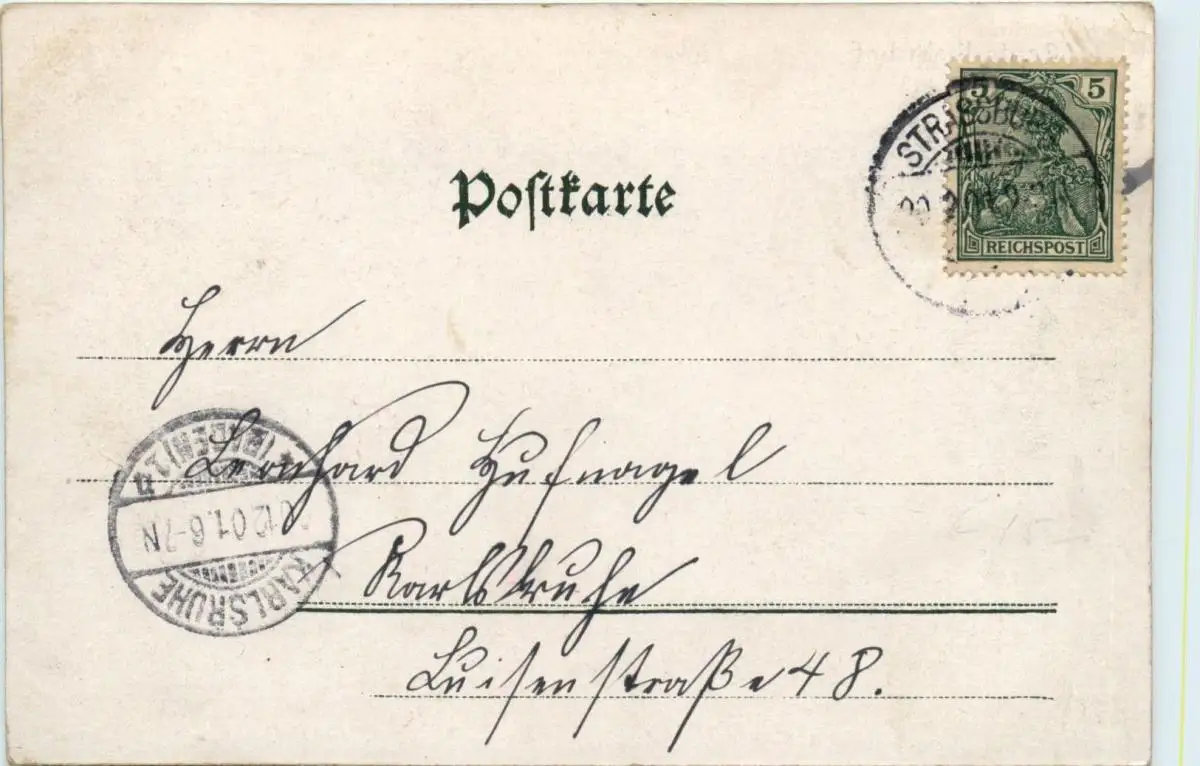 5 5
STRASSBURG
REICHSPOST
Postkarte
Herrn
Leonhard Hufnagel
Karlsruhe
Luisenstraße 48.
(BADEN)
12.01.6-7N
KARLSRUHE